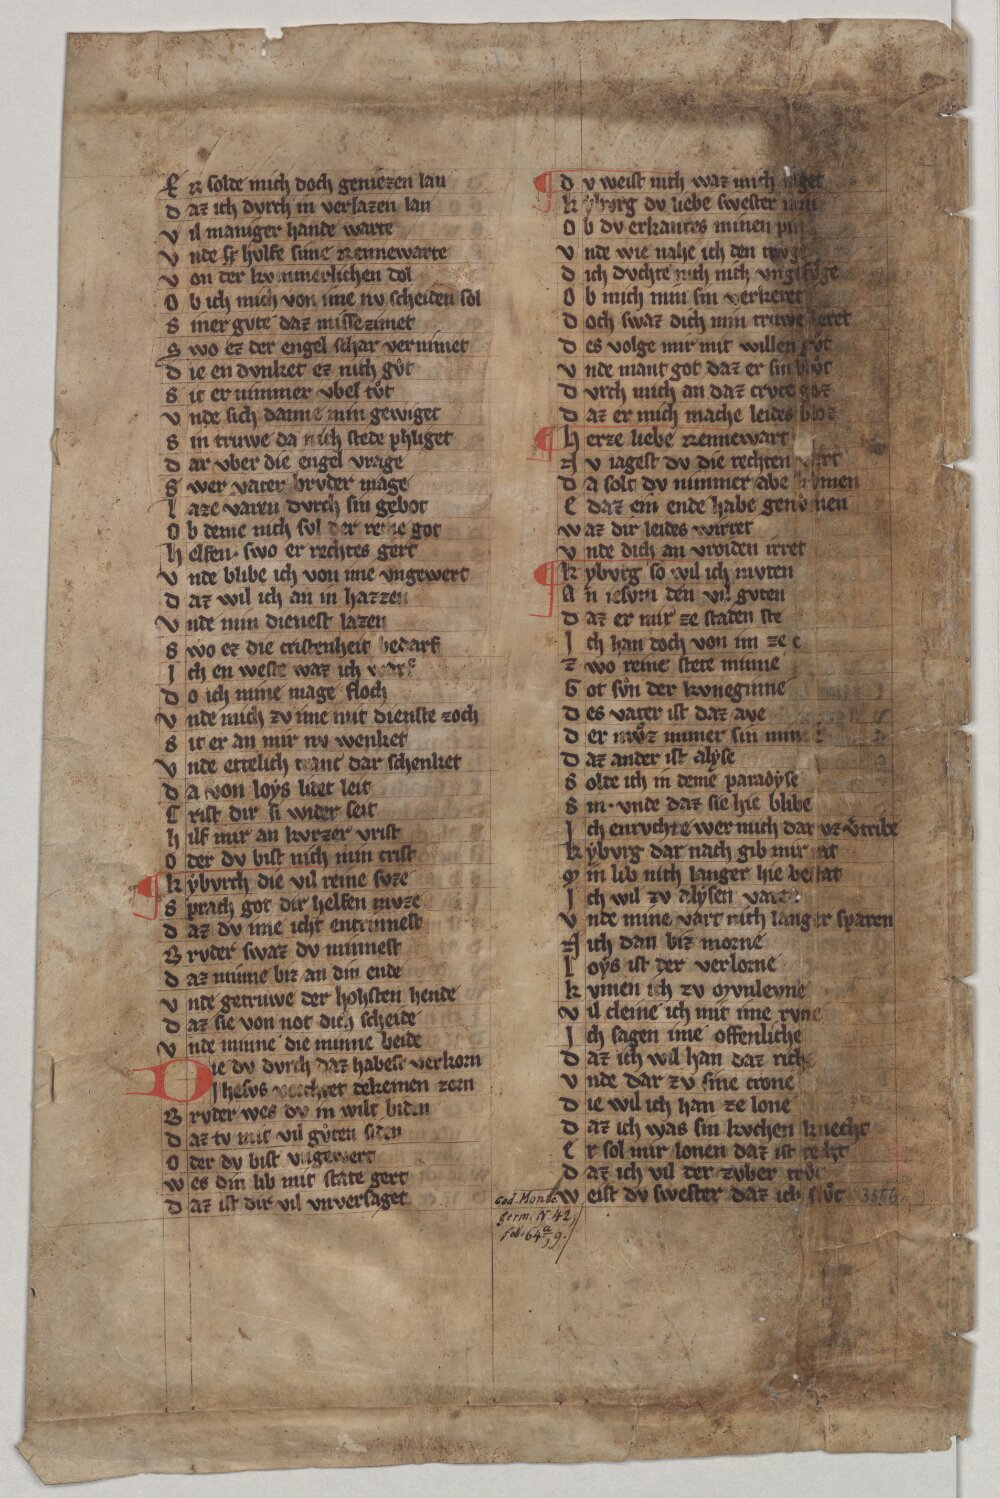 Er solde mich doch geniezen lan
Daz ich dvrch in verlazen han
Vil maniger hande warte
Vnde ze hvlfe sime Rennewarte
Von der kvmmerlichen dol
Ob ich mich von ime nv scheiden sol
Siner gvte daz missezimet
Swo ez der engel schar vernimet
Die en dvnket ez nich gůt
Sit er nimmer vbel tůt
Vnde sich danne min gewiget
Sin truwe da mich stede phliget
Dar vber die engel vrage
Swer vater brvder mage
Laze varen dvrch sin gebot
Ob deme nich sol der reine got
Helfen. swo er rechtes gert
Vnde blibe ich von ime vngewert
Daz wil ich an in hazzen
Vnde min dienest lazen
Swo ez die cristenheit bedarf
Ich en weste waz ich warf
Do ich mine mage floch
Vnde mich zv ime mit dienste zoch
Sit er an mir nv wenket
Vnde ettelich tranc dar schenket
Da von loys litet leit
Crist dir si wider seit
Hilf mir an kvrzer vrist
Oder dv bist nich min crist
Kyburch die vil reine svze
Sprach got dir helfen mvze
Daz dv ime icht entrinnest
Brvder swaz dv minnest
Daz minne biz an din ende
Vnde getruwe der hohsten hende
Daz sie von not dich scheide
Vnde minne die minne beide
Die dv dvrch daz habest verkorn
Ihesvs vorchtet dekeinen zorn
Brvder wes dv in wilt biden
Daz tv mit vil gůten siden
Oder dv bist vngewert
Wes din lib mit state gert
Daz ist dir vil vnversaget
Dv weist nich waz mich
Kyburg dv liebe swester min
Ob dv erkantes minen
Vnde wie nahe ich den
Dich dvchte mich nich vngefvge
Ob mich min sin verkeret
Doch swaz dich min truwe leret
Des volge mir mit willen gůt
Vnde mant got daz er sin blůt
Dvrch mich an daz cruce goz
Daz er mich mache leides bloz
Herze liebe Rennewart
Nv iagest dv die rechten vart
Da solt dv nimmer abe kvmen
E daz ein ende habe genvmen
Waz dir leides wirret
Vnde dich an vroiden irret
Kyburg so wil ich mvten
An iesum den vil gvten
Daz er mir ze staden ste
Ich han doch von im ze e
Zwo reine stete minne
Got svn der kvneginne
Des vater ist daz aye
Der mvz immer sin
Daz ander ist alyse
Solde ich in deme paradyse
Sin. vnde daz sie hie blibe
Ich enruchte wer mich dar vz tribe
Kyburg dar nach gib mir rat
Min lib nich langer hie bestat
Ich wil zv alysen varen
Vnde mine vart nich langer sparen
Nich dan biz morne
Loys ist der verlorne
Kvmen ich zv mvnlevne
Vil cleine ich mit ime rvne
Ich sagen ime offenliche
Daz ich wil han daz riche
Vnde dar zv sine crone
Die wil ich han ze lone
Daz ich was sin kvchen knecht
Er sol mir lonen daz ist recht
Daz ich vil der zvber trůc
Weist dv swester daz ich slůc
Cod. Monac.
germ. N. 42,
fol. 64ᵃ, 9.